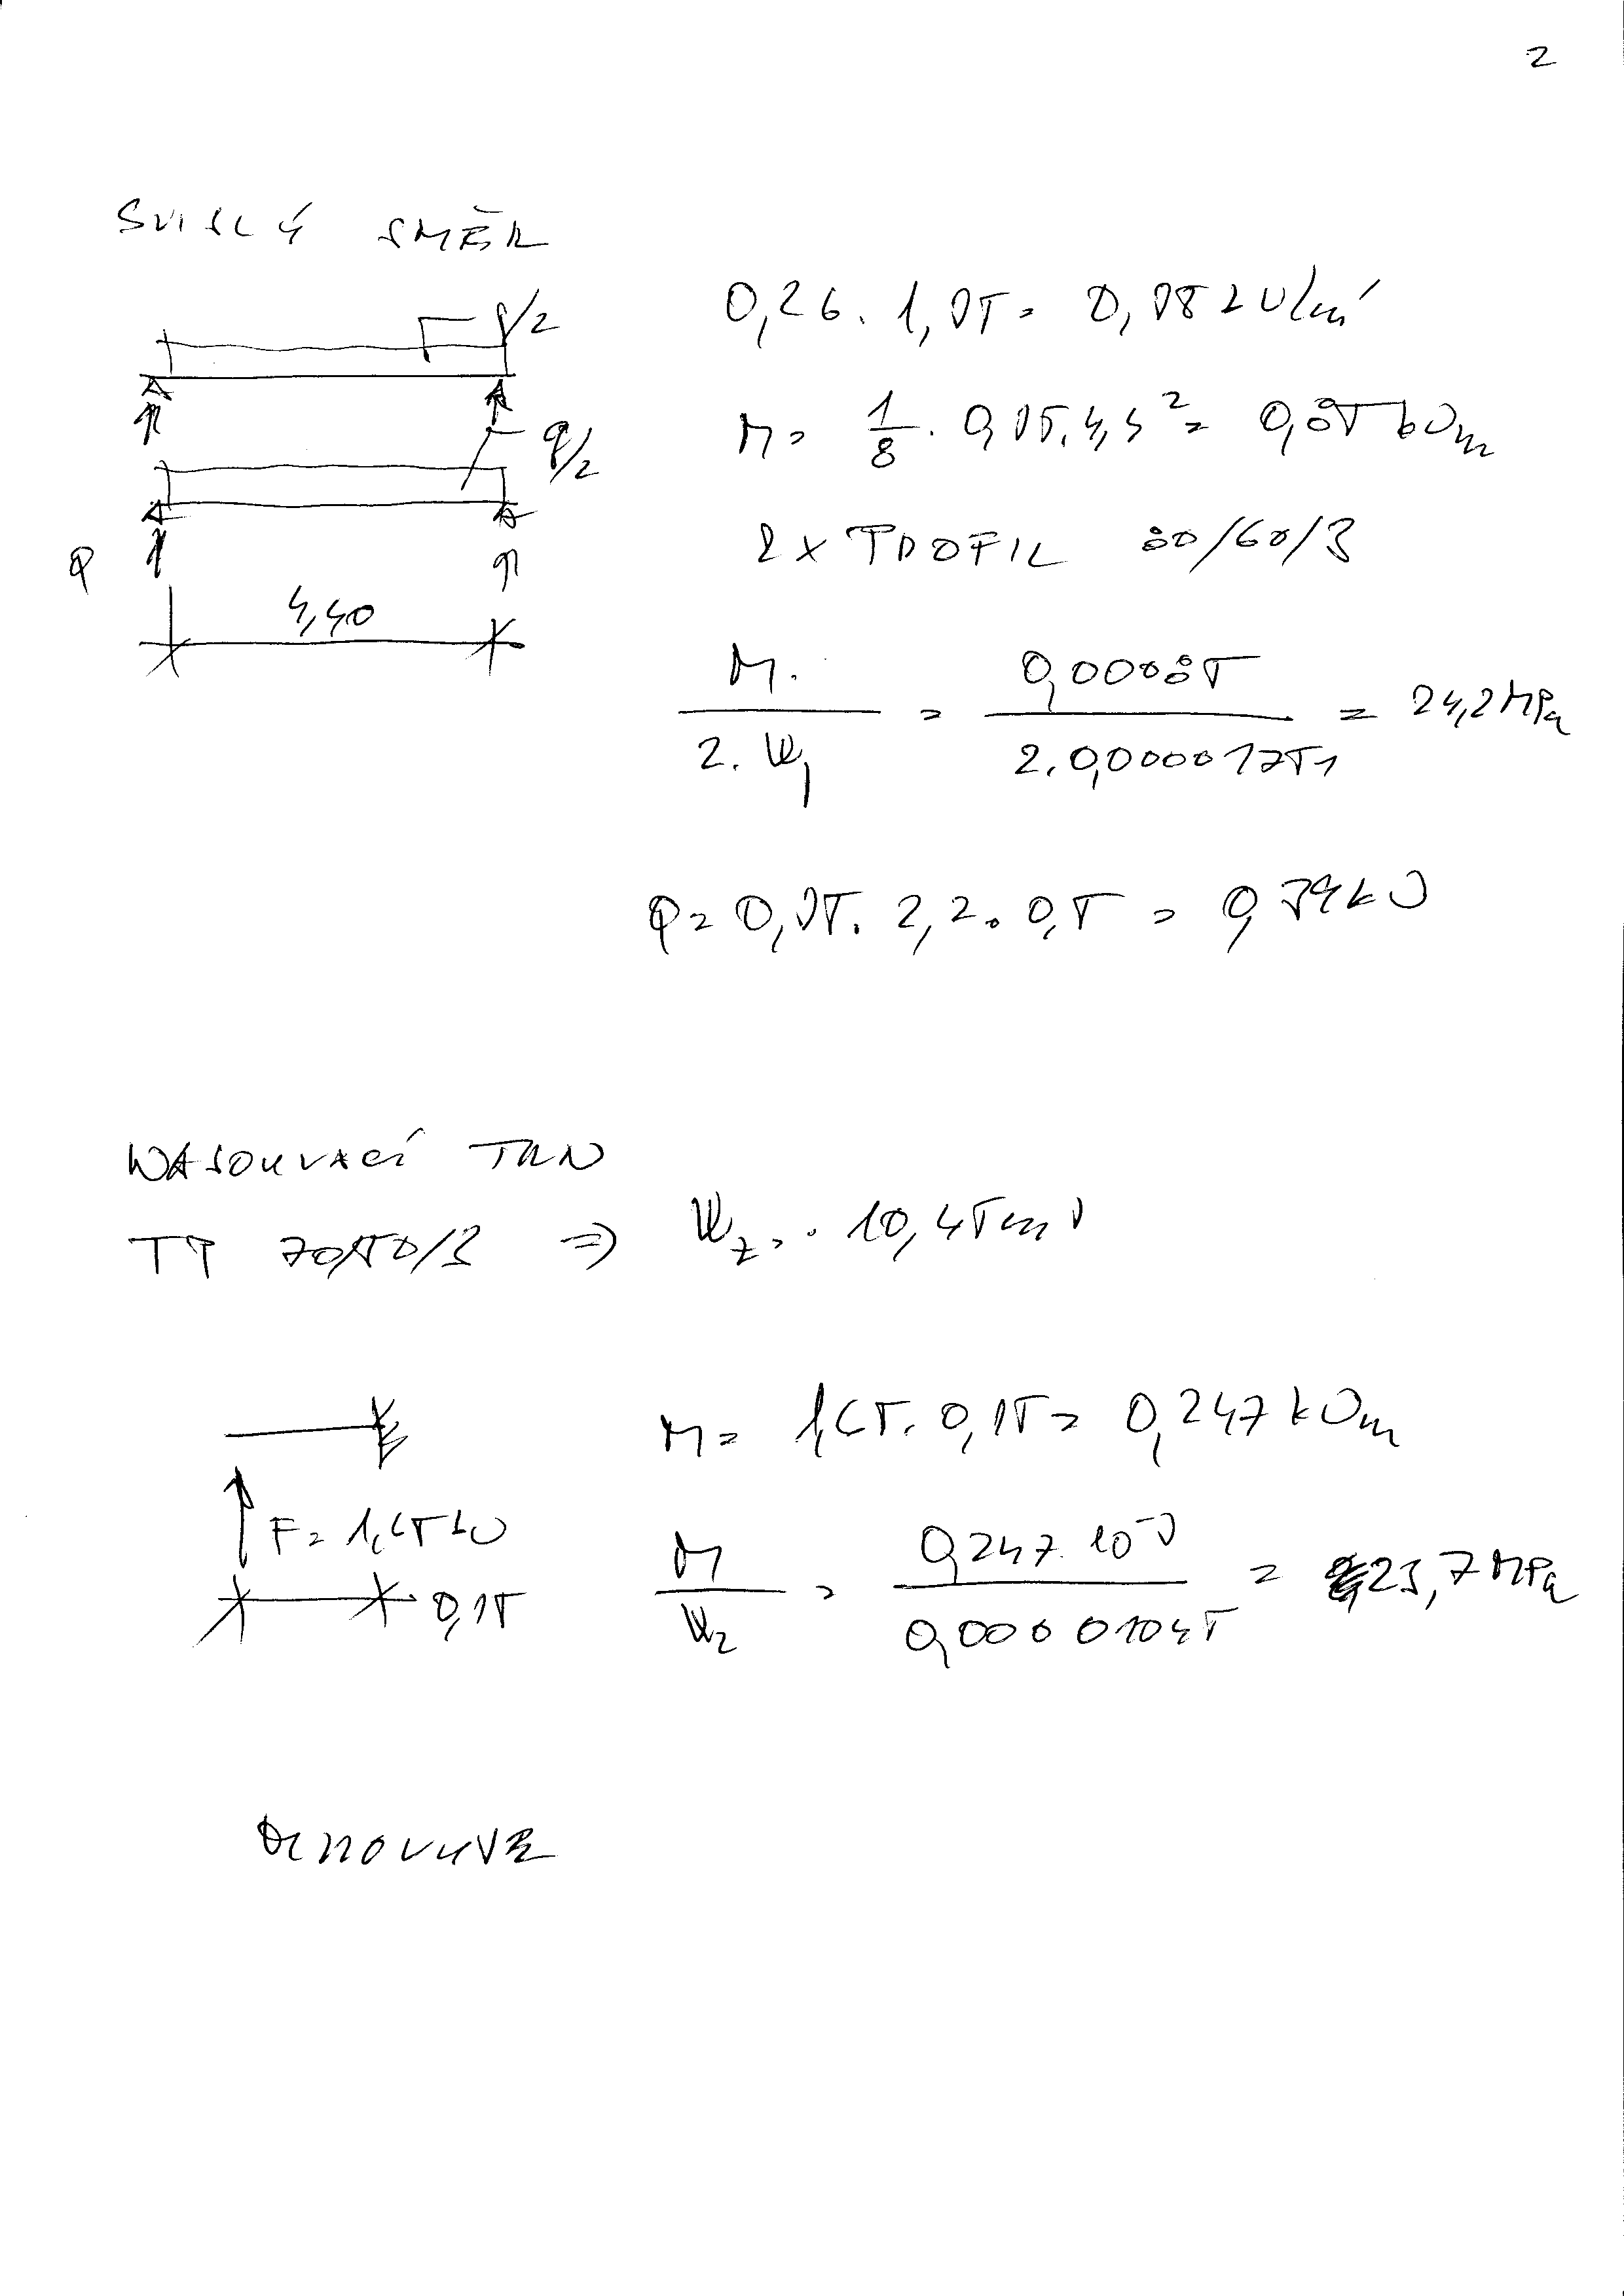 2
SVISLÝ SMĚR
q/2
0,26 . 1,35 = 0,35 kN/m'
q/2
M = 1/8 . 0,35 . 4,4² = 0,85 kNm
2 x PROFIL 80/60/3
Q
4,40
M / 2.Wy = 0,00085 / 2.0,00001751 = 24,2 MPa
Q = 0,35 . 2,2 . 0,5 = 0,39 kN
NASOUVACÍ TRN
TP 70/50/3 ⇒ Wz = 10,45 cm³
M = 1,65 . 0,15 = 0,247 kNm
F = 1,65 kN
0,15
M / Wz = 0,247 . 10⁻³ / 0,00001045 = 23,7 MPa
VYHOVUJE